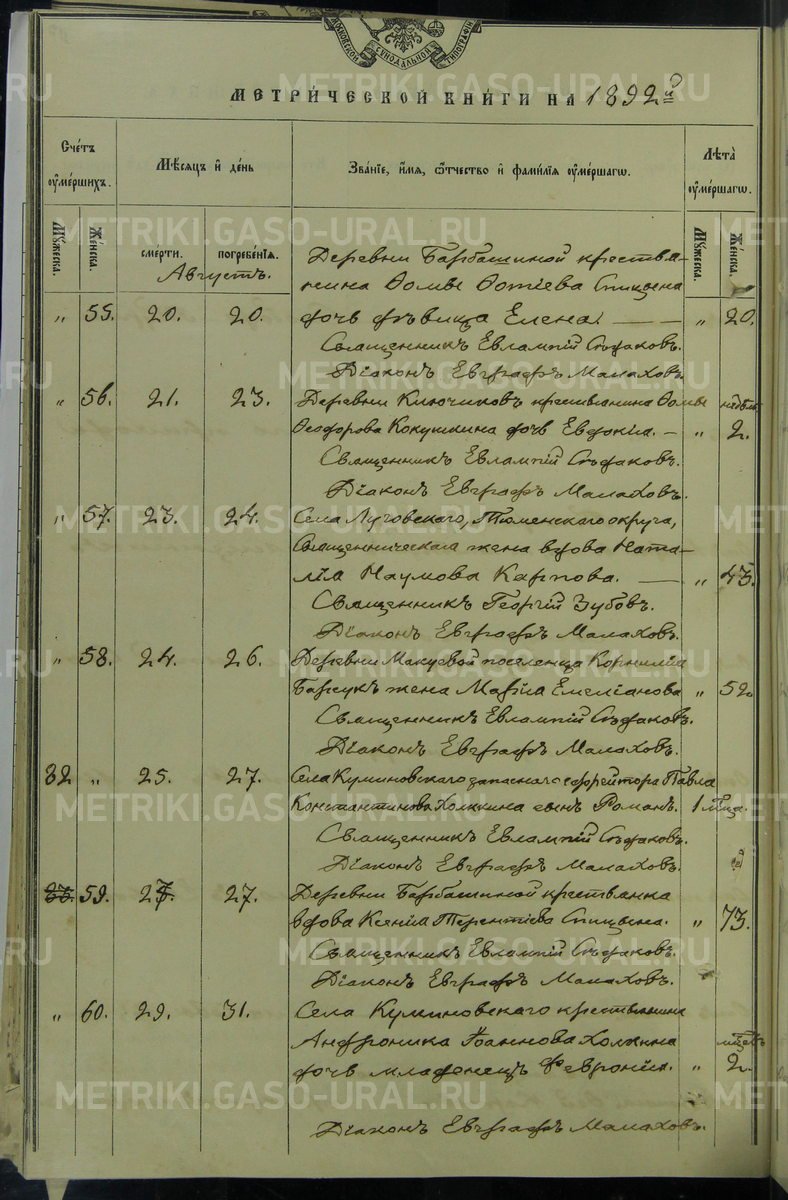 МОСКОВСКОЙ СѴНОДАЛЬНОЙ ТИПОГРАФІИ
МЕТРИ́ЧЕСКОЙ КНИ́ГИ НА 1892й
Сче́тъ оу҆ме́ршихъ.
Мѣ́сяцъ и҆ де́нь
Зва́нїе, и҆́мя, ѻ҆́тчество и҆ фами́лїя оу҆ме́ршагѡ.
Лѣ́та оу҆ме́ршагѡ.
Му́жеска.
Же́нска.
сме́рти.
погребе́нїя.
Му́жеска.
Же́нска.
Августъ.
Деревни Барбашиной крестья-
нина Ѳомы Ѳотіева Спицына
„ 55. 20. 20. дочь дѣвица Елена. — „ 20.
Священникъ Евлампій Съдаковъ.
Діаконъ Евграфъ Малаховъ.
„ 56. 21. 23. Деревни Ключиковъ крестьянина Ѳомы недѣль
Ѳеодорова Кокушкина дочь Евдокія. — „ 2.
Священникъ Евлампій Съдаковъ.
Діаконъ Евграфъ Малаховъ.
„ 57. 23. 24. Села Луговскаго, Тюменскаго округа,
Священническая жена вдова Ната-
лія Наумова Карпова. — „ 43.
Священникъ Георгій Зубовъ.
Діаконъ Евграфъ Малаховъ.
„ 58. 24. 26. Деревни Макуевой поселенца Корнилія
Барсукъ жена Марія Емеліанова „ 52
Священникъ Евлампій Съдаковъ.
Діаконъ Евграфъ Малаховъ.
82 „ 25. 27. Села Куминовскаго запаснаго ефрейтора Павла
Константинова Холкина сынъ Романъ. 1 мѣсца.
Священникъ Евлампій Съдаковъ.
Діаконъ Евграфъ Малаховъ.
59. 27. Деревни Барбашиной крестьянка
вдова Ксенія Терентіева Спицына. „ 73.
Священникъ Евлампій Съдаковъ.
Діаконъ Евграфъ Малаховъ.
„ 60. 29. 31. Села Куминовскаго крестьянина
Андроника Іоаннова Холкина мѣсцевъ
дочь младенецъ Февронія. „ 2.
Діаконъ Евграфъ Малаховъ.
METRIKI.GASO-URAL.RU